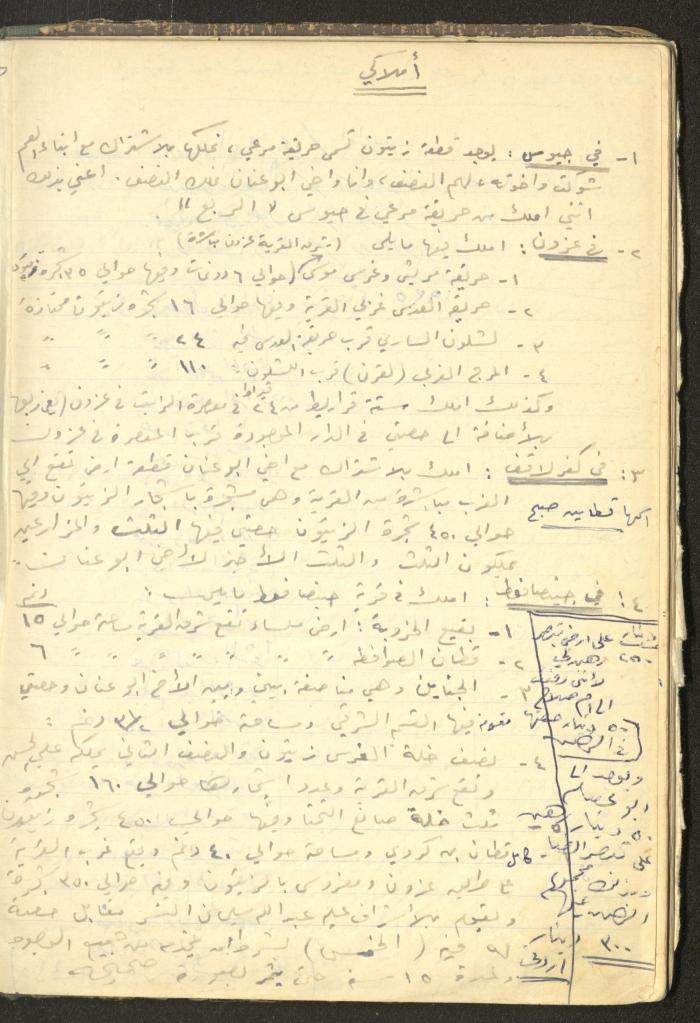 أملاكي
١- في جيوس : يوجد قطعة زيتون تسمى حريقة مرعي ، نملكها بالاشتراك مع ابناء العم
شوكت واخوته ، لهم النصف ، وانا واخي ابو عنان نملك النصف . اعني بذلك
انني املك من حريقة مرعي في جيوس " الربع " .
٢- في عزون : املك فيها مايلي (شرق القرية عزون مباشرة)
١- حريقة مريش وغرس موسى (حوالي ٦ دونمات وفيها حوالي ٣٥ شجرة زيتون
٢- حريقة العدس غربي القرية وفيها حوالي ١٦ شجرة زيتون ممتازة
٣- لشلون الساري قرب حريقة العدس فيه ٢٤ " " "
٤- المرج الغربي (القرن) قرب الشلون " ١١٠ " " "
وكذلك املك ستة قراريط من ٢٤ قيراط في معصرة الزيت في عزون
بالأضافة الى حصتي في الدار الموجودة قرب المعصرة في عزون
٣: في كفر لاقف : املك بالاشتراك مع اخي ابو عنان قطعة ارض تقع الى
الغرب مباشرة من القرية وهي مشجرة باشجار الزيتون وفيها
اسمها قطاين صبح
حوالي ٤٥٠ شجرة الزيتون حصتي فيها الثلث والمزارعين
يملكون الثلث والثلث الأخير لأخي ابو عنان .
٤: في جينصافوط : املك في قرية جينصافوط مايلي :
١- بقيع الخزوبة : ارض ملساء تقع شرق القرية مساحة حوالي ١٥ دنم
٢- قطان الصوافطه " " " " " ٦
٣- الجناين وهي مناصفة بيني وبين الأخ ابو عنان وحصتي
فيها القسم الشرقي ومساحة حوالي ٣١/٢ دنم
٤- نصف خلة الغرس زيتون والنصف الثاني يملكه علي
وتقع شرق القرية وعدد اشجارها حوالي ١٦٠ شجرة
ثلث خلة صانع التحتا وفيها حوالي ٤٥٠ شجرة زيتون
كامل قطان بن كردي ومساحة حوالي ٤٠ دنم ويقع غرب القرية
على طريق عزون ومغروس بالزيتون وفيه حوالي ٣٥٠ شجرة
ويقوم بالاشراف عليه عبدالله سليمان النسر مقابل حصة
له فيه ( الخمس )
ولمدة ١٥ سنة حتى يثمر بصورة صحيحة
٢٥٠
على ارض
وهن
٥٠ دينار
في الرهن
ويوجد الى
ابو عصام
٥٠ دينار رهن
على
الرهن
٣٠٠ دينار
اردني